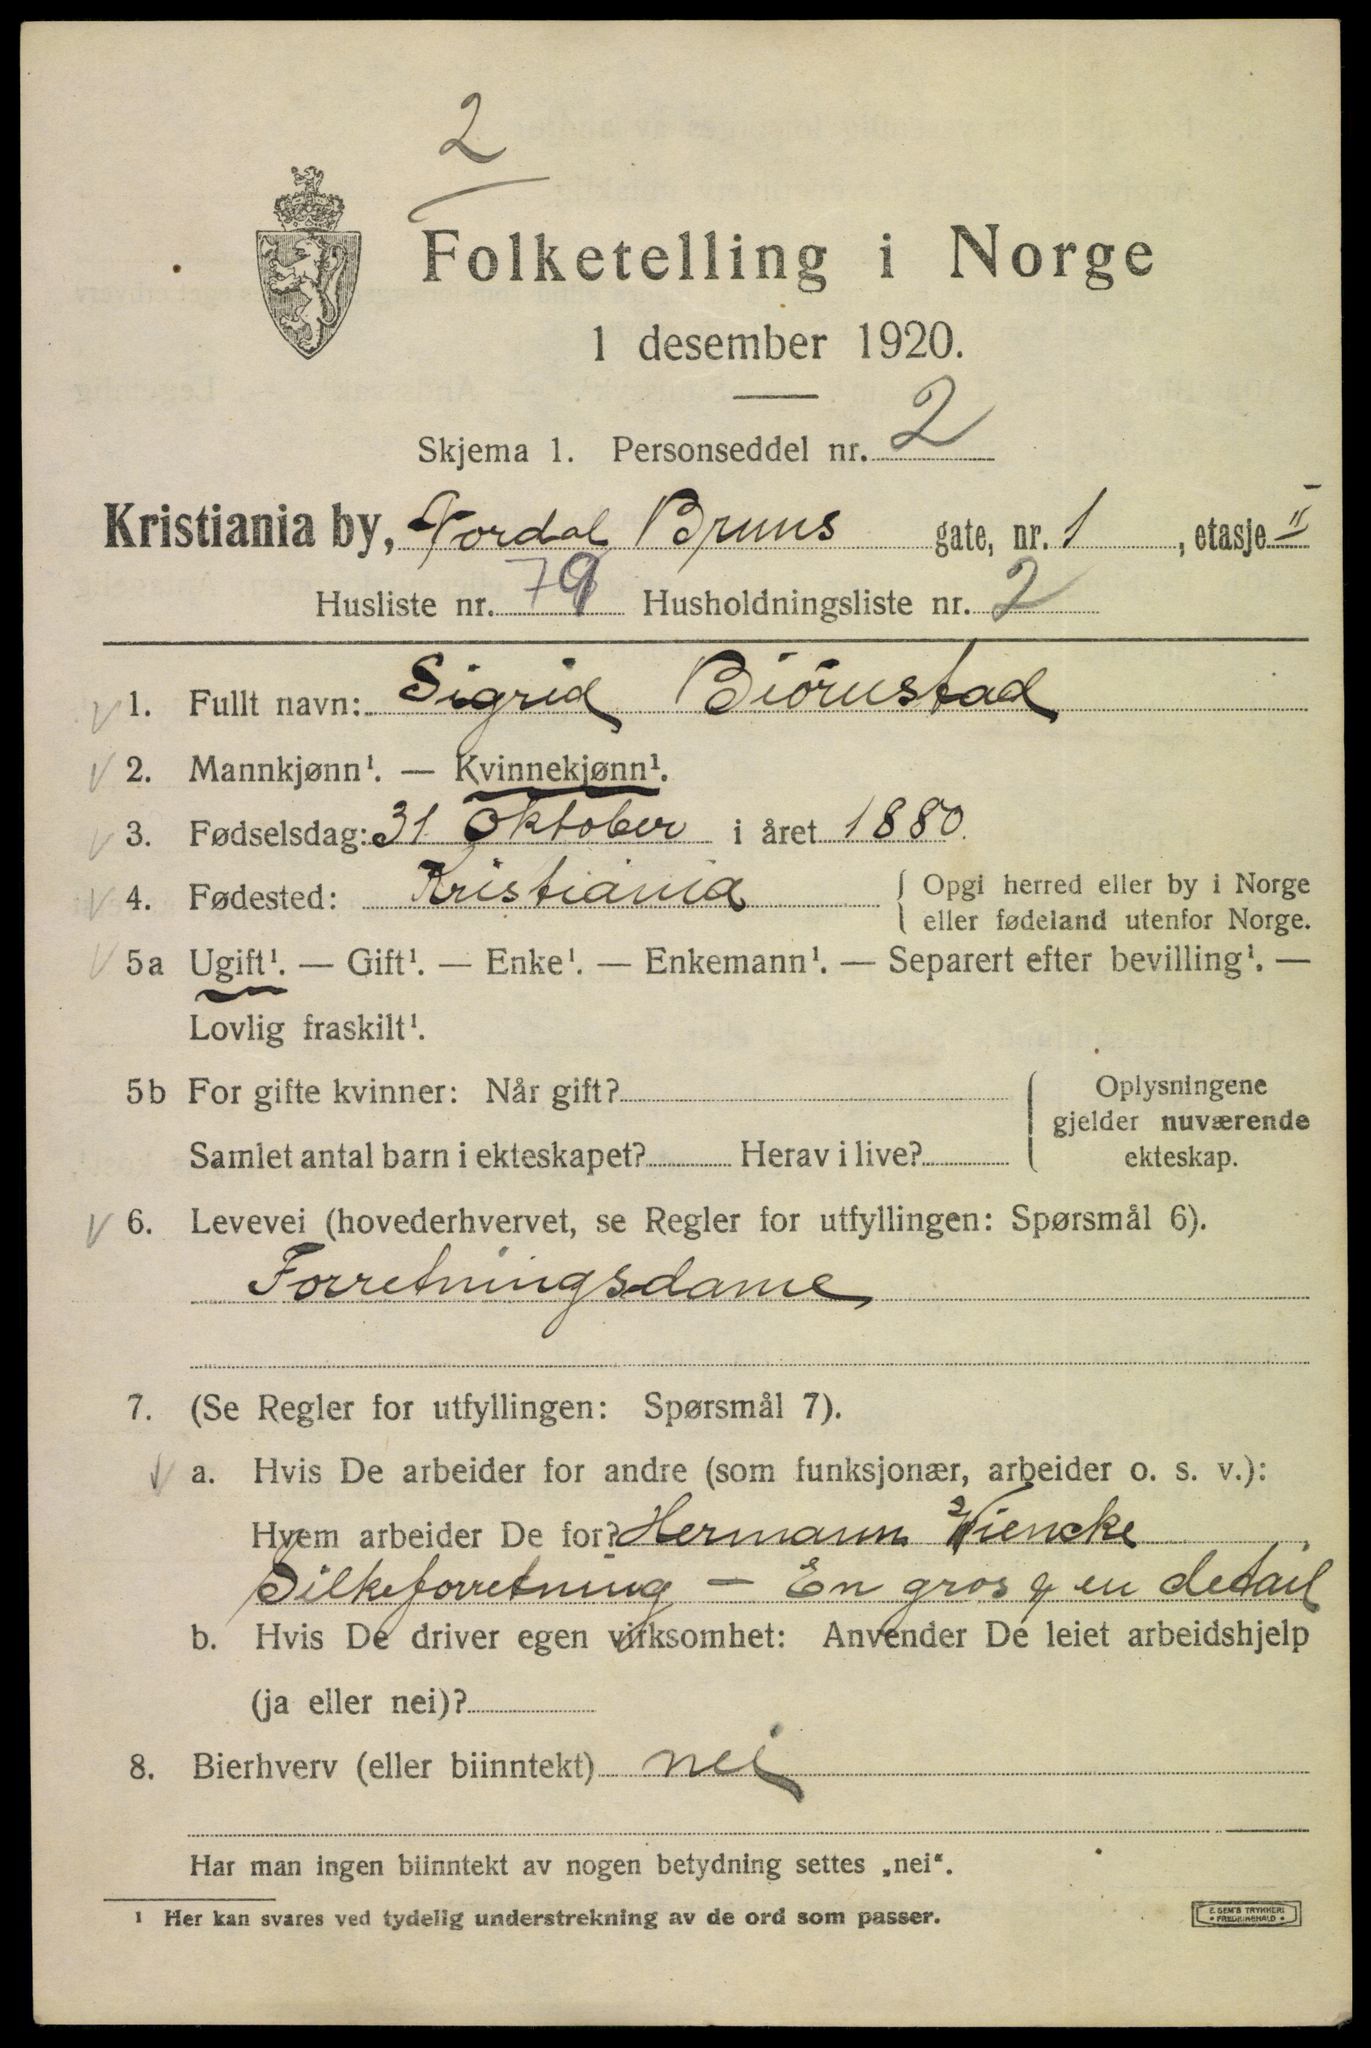 2
Folketelling i Norge
1 desember 1920.
Skjema 1. Personseddel nr. 2
Kristiania by, Nordal Bruns gate, nr. 1, etasje II
Husliste nr. 79 Husholdningsliste nr. 2
1. Fullt navn: Sigrid Biörnstad
2. Mannkjønn¹. — Kvinnekjønn¹.
3. Fødselsdag: 31 Oktober i året 1880.
4. Fødested: Kristiania { Opgi herred eller by i Norge
eller fødeland utenfor Norge.
5a Ugift¹. — Gift¹. — Enke¹. — Enkemann¹. — Separert efter bevilling¹. —
Lovlig fraskilt¹.
5b For gifte kvinner: Når gift? { Oplysningene
gjelder nuværende
Samlet antal barn i ekteskapet? Herav i live? ekteskap.
6. Levevei (hovederhvervet, se Regler for utfyllingen: Spørsmål 6).
Forretningsdame
7. (Se Regler for utfyllingen: Spørsmål 7).
a. Hvis De arbeider for andre (som funksjonær, arbeider o. s. v.):
Hvem arbeider De for? Hermann Wiencke
Silkeforretning — En gros & en detail
b. Hvis De driver egen virksomhet: Anvender De leiet arbeidshjelp
(ja eller nei)?
8. Bierhverv (eller biinntekt) nei
Har man ingen biinntekt av nogen betydning settes „nei“.
¹ Her kan svares ved tydelig understrekning av de ord som passer.
E. SEM'S TRYKKERI
• FREDRIKSHALD •